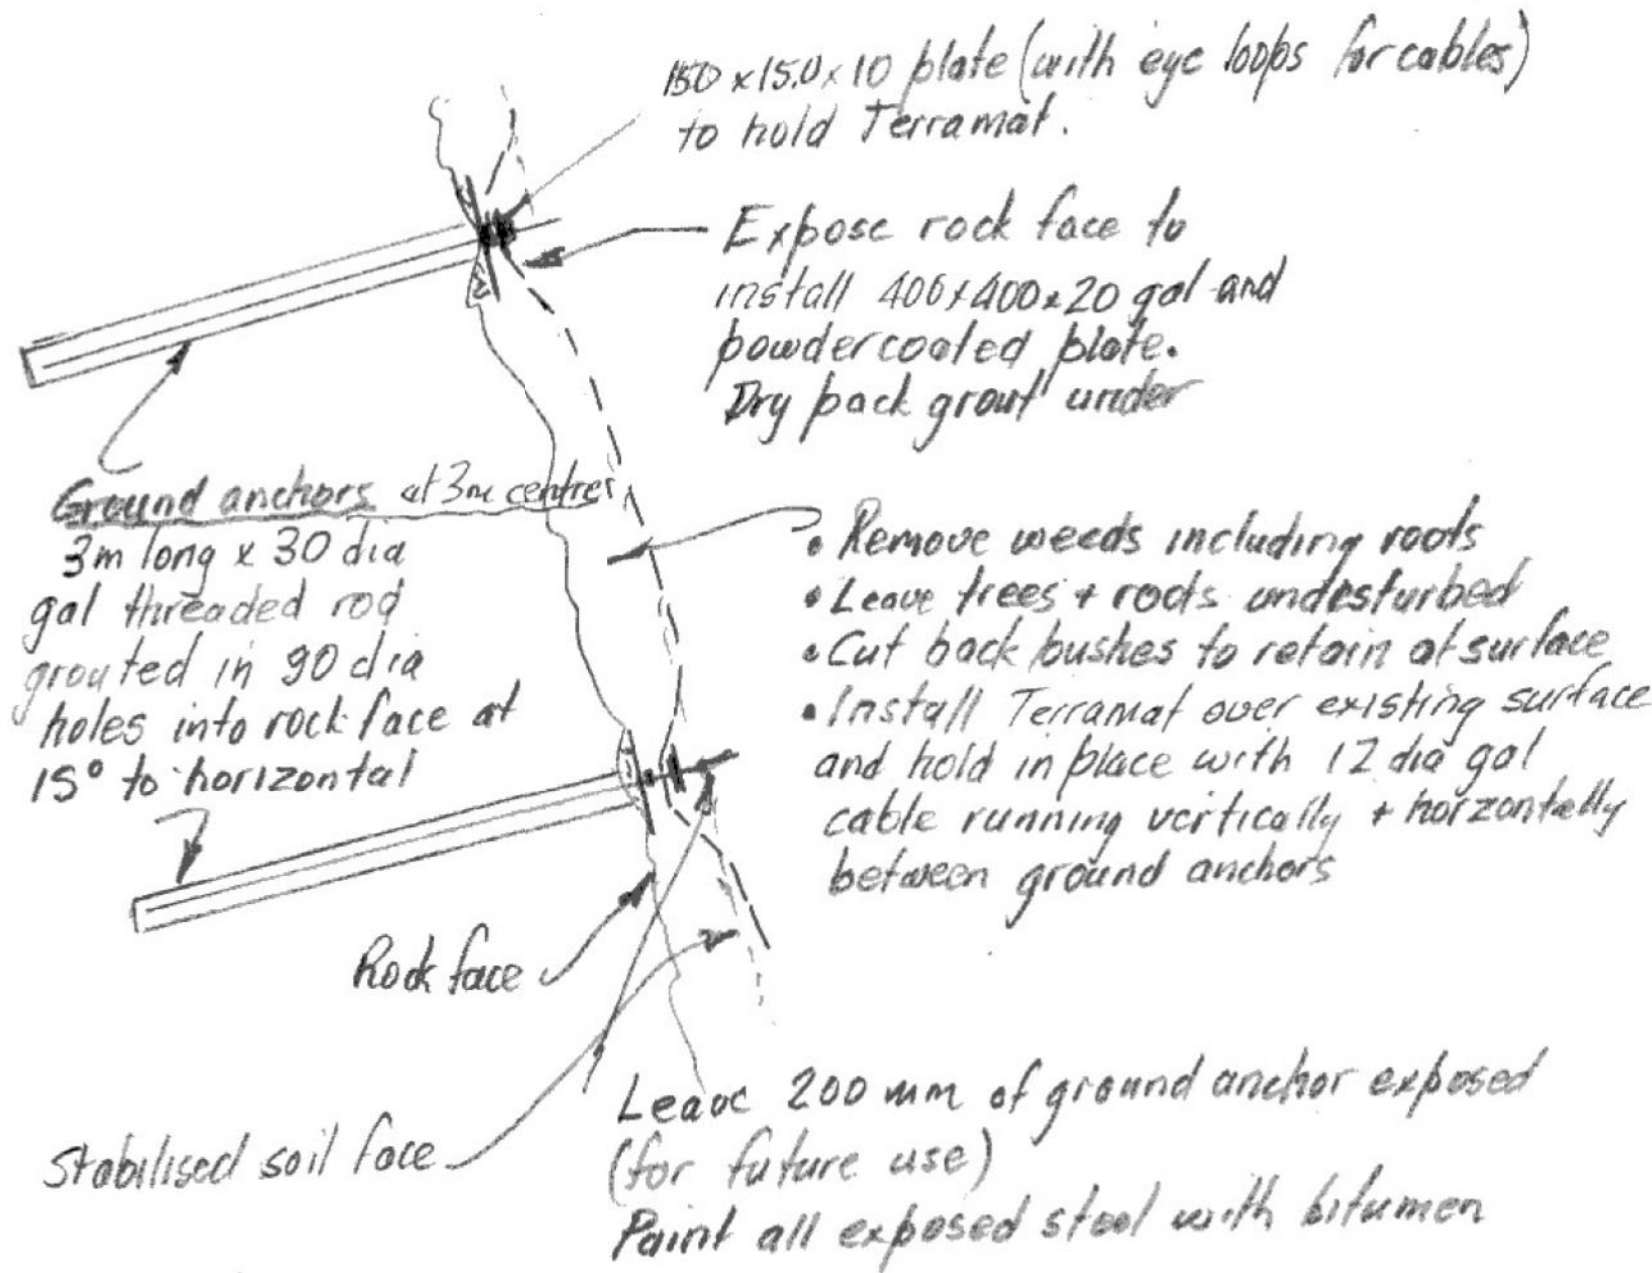 150 x 150 x 10 plate (with eye loops for cables)
to hold Terramat.
Expose rock face to
install 400x400x20 gal and
powdercoated plate.
Dry pack grout under
Ground anchors at 3m centres
3m long x 30 dia
gal threaded rod
grouted in 90 dia
holes into rock face at
15° to horizontal
• Remove weeds including roots
• Leave trees + roots undesturbed
• Cut back bushes to retain at surface
• Install Terramat over existing surface
and hold in place with 12 dia gal
cable running vertically + horzontally
between ground anchors
Rock face
Stabilised soil face
Leave 200 mm of ground anchor exposed
(for future use)
Paint all exposed steel with bitumen